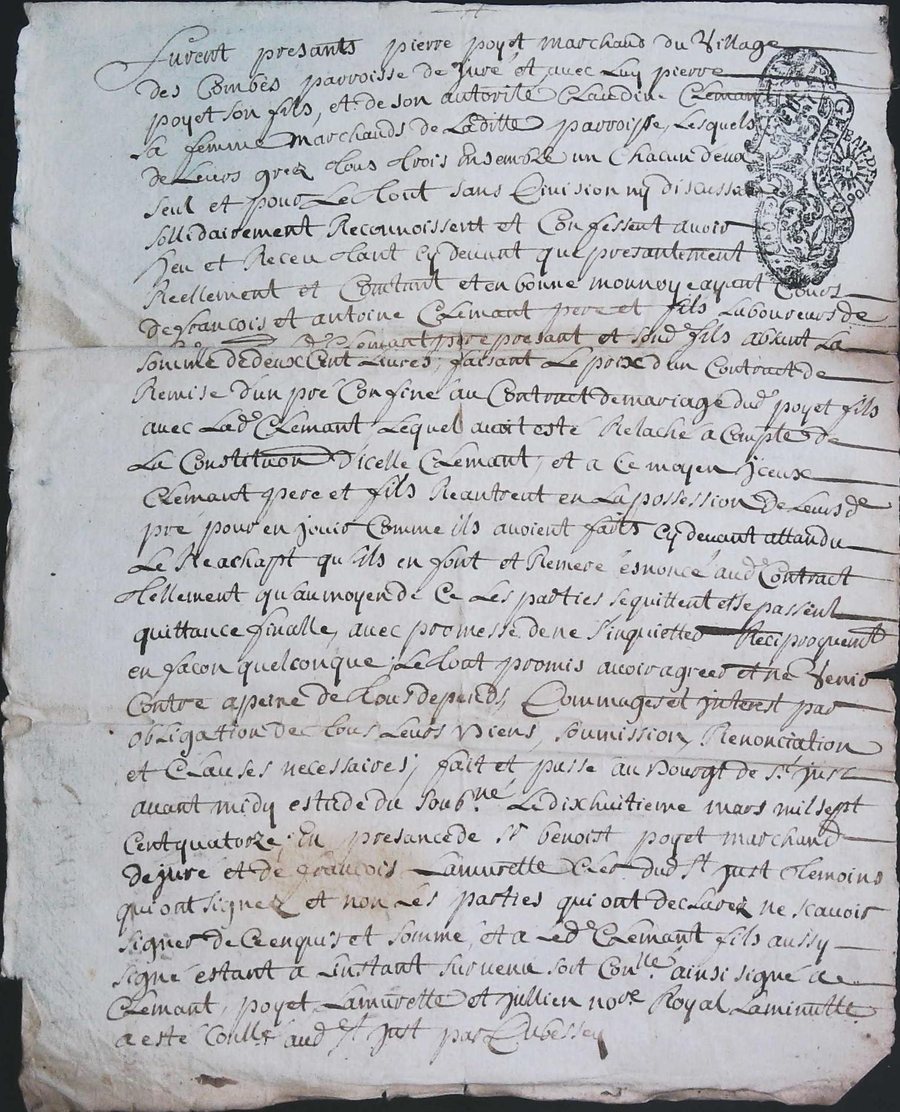 Furent presants pierre poyet marchand du Village
des Combes parroisse de Juré et avec Luy pierre
poyet son fils, et de son autorité Claudine Clemant
sa femme marchands de Laditte parroisse, Lesquels
de Leurs grez tous trois Ensemble un Chacun deux
seul et pour Le tout sans Division ny discussion
sollidairement Reconnoissent et Confessent avoir
heu et Receu tant cy devant que presantement
Reellement et Contant et en bonne monnoye ayant Cours
de françois et antoine Clemant pere et fils Laboureurs de
Clemant pere presant et sond. fils absent La
somme de deux Cent Livres, faisant Le prix d'un Contract de
Remise d'un pré Confiné au Contract de mariage dud. poyet fils
avec Lad.e Clemant, Lequel avoit esté Relaché a Compte de
La Constitution Dicelle Clemant, et a Ce moyen Iceux
Clemant pere et fils Reantrent en La possession de Leurs d.
pré pour en jouir Comme ils avoient faits cy devant attandu
Le Reachapt qu'ils en font et Remeré esnoncé aud. Contract
tellement qu'au moyen de Ce Les parties se quittent et se passent
quittance finalle, avec promesse de ne s'inquietter Reciproquemt
en façon quelconque, Le tout promis avoir agreer et ne Venir
Contre a peine de tous depends, Dommages et interest par
obligation de tous Leurs Biens, soumission, Renonciation
et Clauses necessaires; fait et passé au Bourgt de st just
avant midy estude du Soubs.né Le dixhuitieme mars mil sept
Cent quatorze; En presance de Sr benoist poyet marchand
de juré et de françois Lamurette Clerc dud. St just temoins
qui ont signez et non Les parties qui ont declarez ne scavoir
signer de Ce enquis et sommé, et a Led. Clemant fils aussy
signé estant a Linstant survenu soit Con.llé ainsi signé a
Clemant, poyet, Lamurette et jullien no.re Royal La minutte
a esté Conll.e aud. St just par Dubessey
GENERALITE
BAIL DE 1706